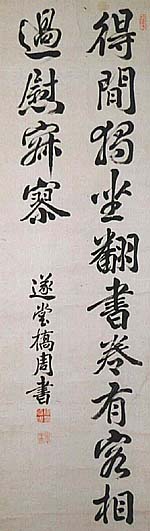 得間獨坐翻書卷有客相
過慰寂寥
遂堂橋周書